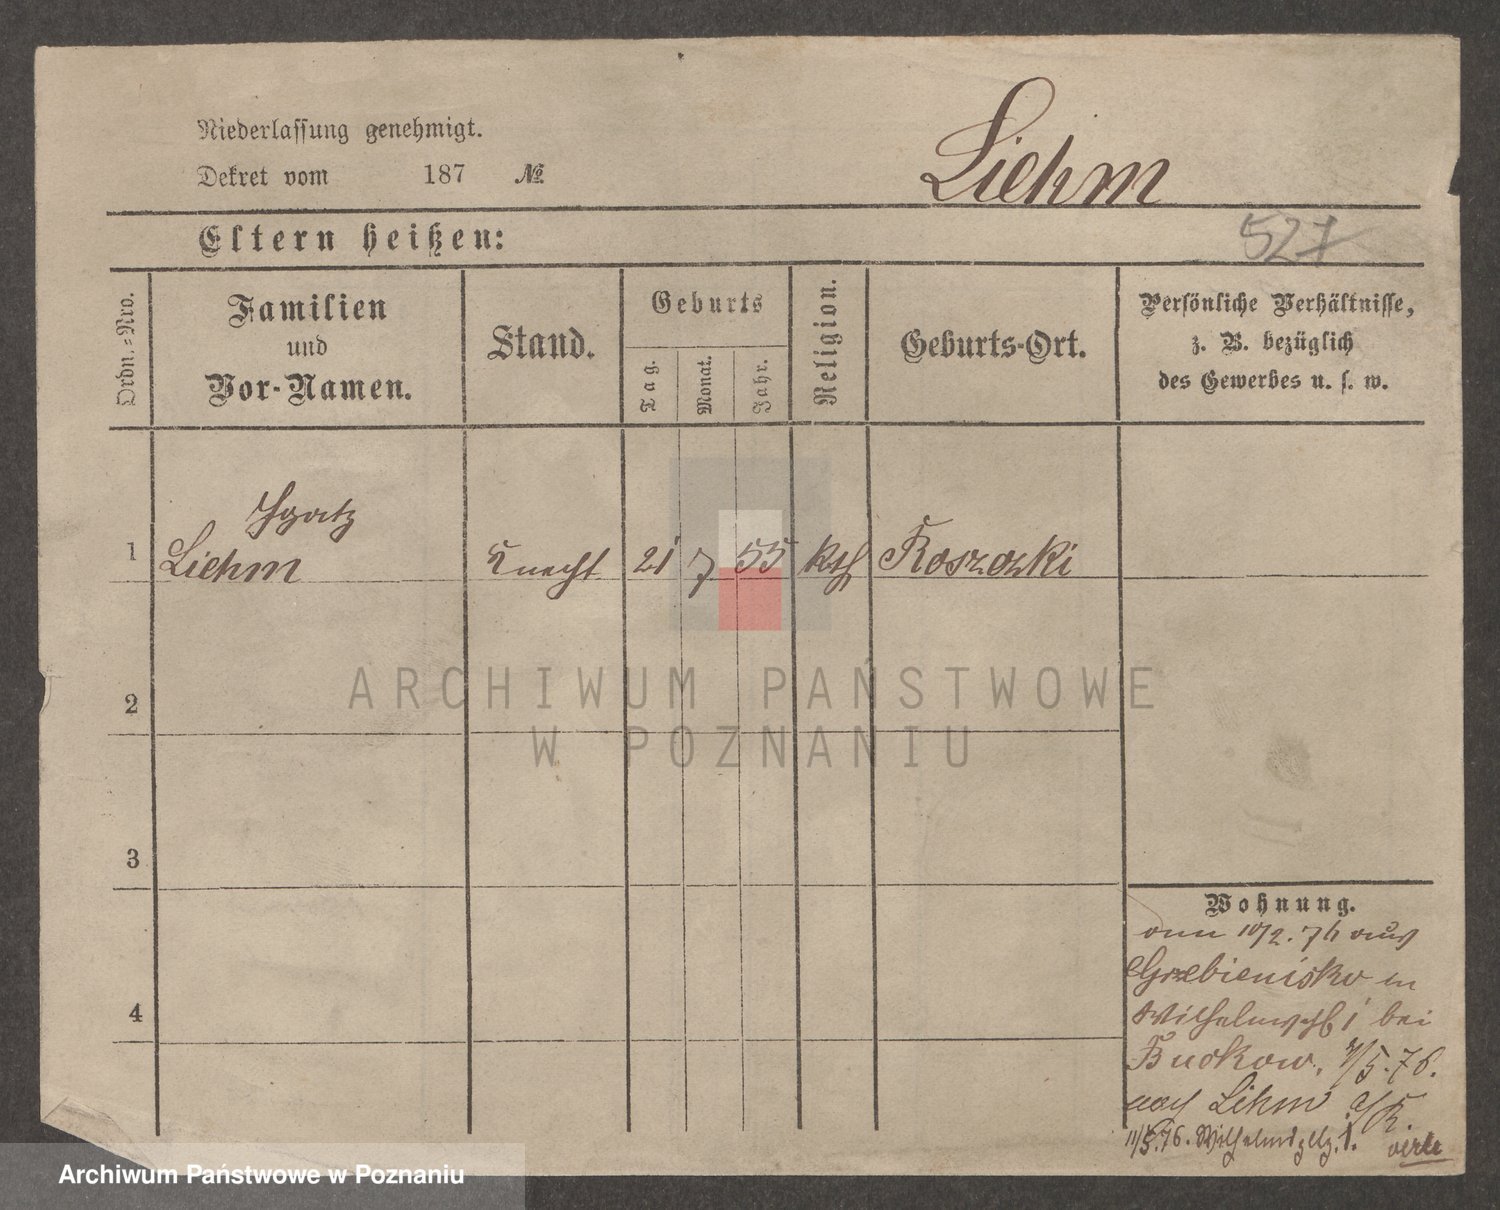 Niederlassung genehmigt.
Dekret vom 187 №
Liehm
Eltern heißen:
527
Ordn.-Nro.
Familien
und
Vor-Namen.
Stand.
Geburts
Tag.
Monat.
Jahr.
Religion.
Geburts-Ort.
Persönliche Verhältnisse,
z. B. bezüglich
des Gewerbes u. s. w.
Ignatz
1 Liehm Knecht 21 7 55 kth
2
3
4
Wohnung.
10/2. 76 aus
Grzebienisko in
bei
Buckow, /5. 76.
nach
11/5.76.
ARCHIWUM PAŃSTWOWE
W POZNANIU
Archiwum Państwowe w Poznaniu